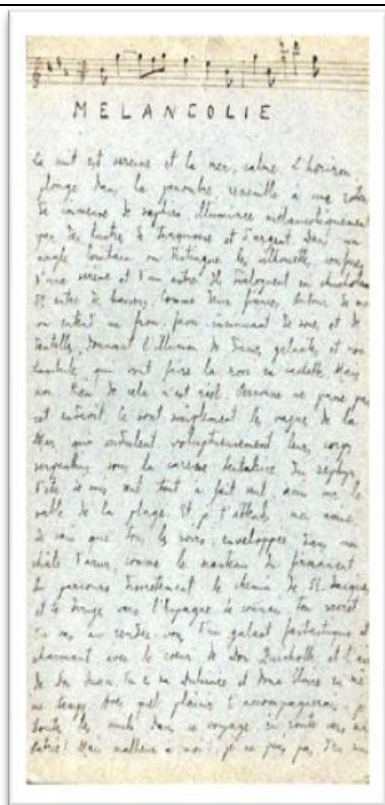 MELANCOLIE
La nuit est sereine et la mer, calme. L'horizon
plonge dans la penombre ressemble à une robe
de immense de saphirs illuminée mélancoliquement
par des lustres de turquoise et d'argent. Dans un
angle lointain on distingue les silhouettes confuses
d'une sirène et d'un autre. Ils dialoguent en
et entre de baisers, comme deux fiancés. Autour de
on entend un frou, frou de soie, et de
dentelle, donnant l'illusion de Dames galantes et
qui vont faire la en cachette. Mais
non. Rien de cela n'est réel. Personne ne passe par
cet endroit. Ce sont simplement les vagues de la
Mer qui ondulent voluptueusement leurs corps
sous la caresse tentatrice du zephyr
d'été. Je suis tout à fait seul assis sur le
sable de la plage. Et je t'attends, mon amie.
Je sais que tous les soirs, enveloppée dans un
châle d'azur, comme le manteau du firmament
tu parcours discrètement le chemin de St. Jacques
et te dirige vers l'Espagne. Je connais ton secret.
Tu vas au rendez-vous d'un galant fantastique et
charmant, avec le coeur de Don Quichotte, et l'air
de Don Juan. Tu es sa Dulcinée et Dona en mê
me temps. Avec quel plaisir t'accompagnerais-je
toutes les nuits dans ce voyage en route vers ma
patrie! Mais malheur à moi! je ne puis pas.